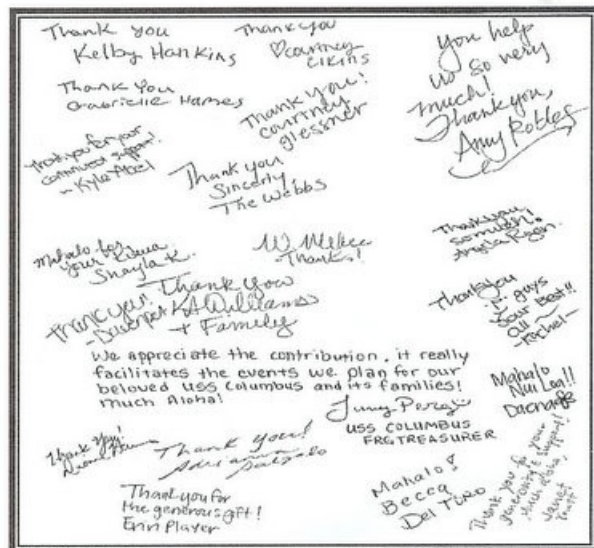 Thank you
Kelby Hankins
Thank you
♡courtney
Elkins
You help
us so very
much!
Thank you,
Amy Robles
Thank You
Gabrielle Hames
Thank you!
Courtney
glessner
Thank you for your
continued support!
~ Kyle Abel
Thank you
Sincerly,
The Webbs
Thank you
so much!
Angela
Mahalo for
your
Shayla K.
Thanks!
Thank you!
Thank you
Williams
+ Family
Thank you
guys
your Best!!
-Rachel-
We appreciate the contribution, it really
facilitates the events we plan for our
beloved USS Columbus and its families!
Much Aloha!
USS COLUMBUS
FRG TREASURER
Mahalo
Nui Loa!!
Thank You!
Thank you!
Adrianna
Salgado
Thank you for
the generous gift!
Erin Player
Mahalo!
Becca
Del Toro
Thank you for your
generosity & support!
Much aloha,
Janet